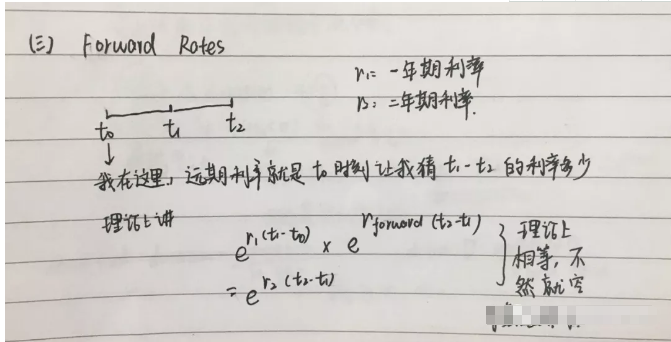 (三) Forward Rates
r₁: 一年期利率
r₂: 二年期利率.
t₀ t₁ t₂
我在这里, 远期利率就是 t₀ 时刻让我猜 t₁-t₂ 的利率多少
理论上讲
e^{r₁(t₁-t₀)} × e^{r_{forward}(t₂-t₁)}
= e^{r₂(t₂-t₁)}
理论上
相等, 不
然就空